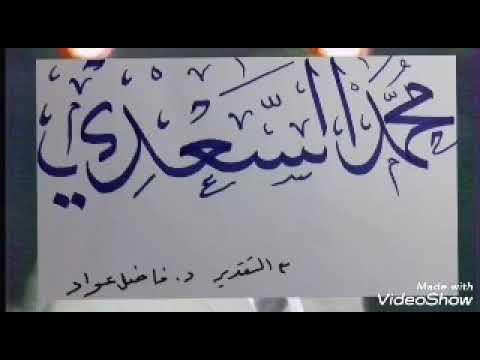 محمد السعدي
مع التقدير د. فاضل عواد
Made with
VideoShow